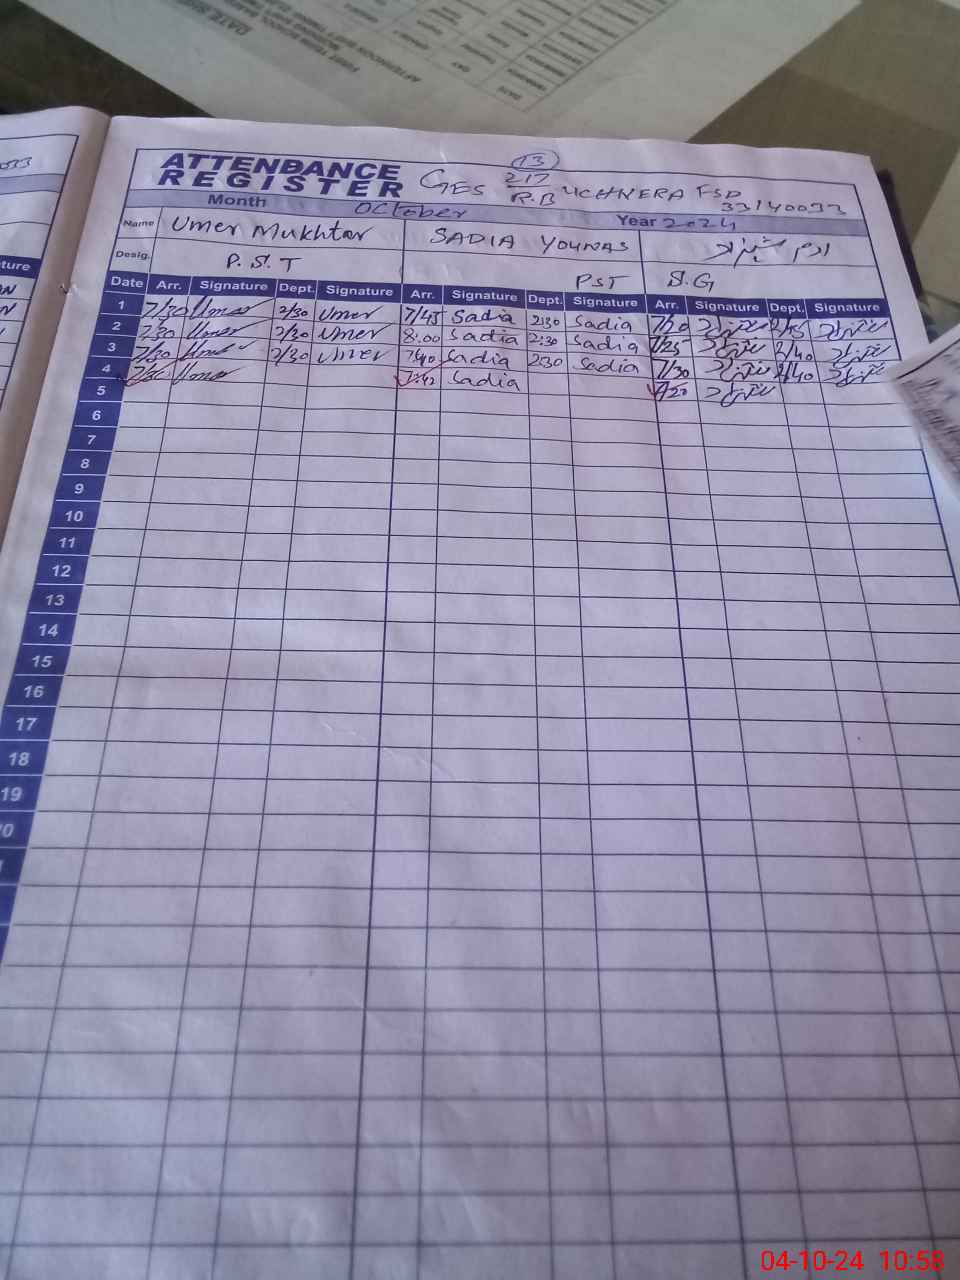 DATE SHEET
FIRST TERM SCHOOL
DAY
DATE
0533
ATTENDANCE
REGISTER
13
GES 217/R.B UCHNERA FSD
33140033
Month October Year 2024
Name Umer Mukhtar SADIA YOUNAS ارم شہزاد
Desig. P.S.T PST S.G
ture
Date Arr. Signature Dept. Signature Arr. Signature Dept. Signature Arr. Signature Dept. Signature
1 7/30 Umer 2/30 Umer 7/45 Sadia 2:30 Sadia 7/20 2/45
2 7:30 Umer 2/30 Umer 8:00 Sadia 2:30 Sadia 7/25 2/40
3 7/30 Umer 2/30 Umer 7:40 Sadia 2:30 Sadia 7/30 2/40
4 7/30 Umer 7:42 Sadia 7/20
5
6
7
8
9
10
11
12
13
14
15
16
17
18
19
04-10-24 10:58